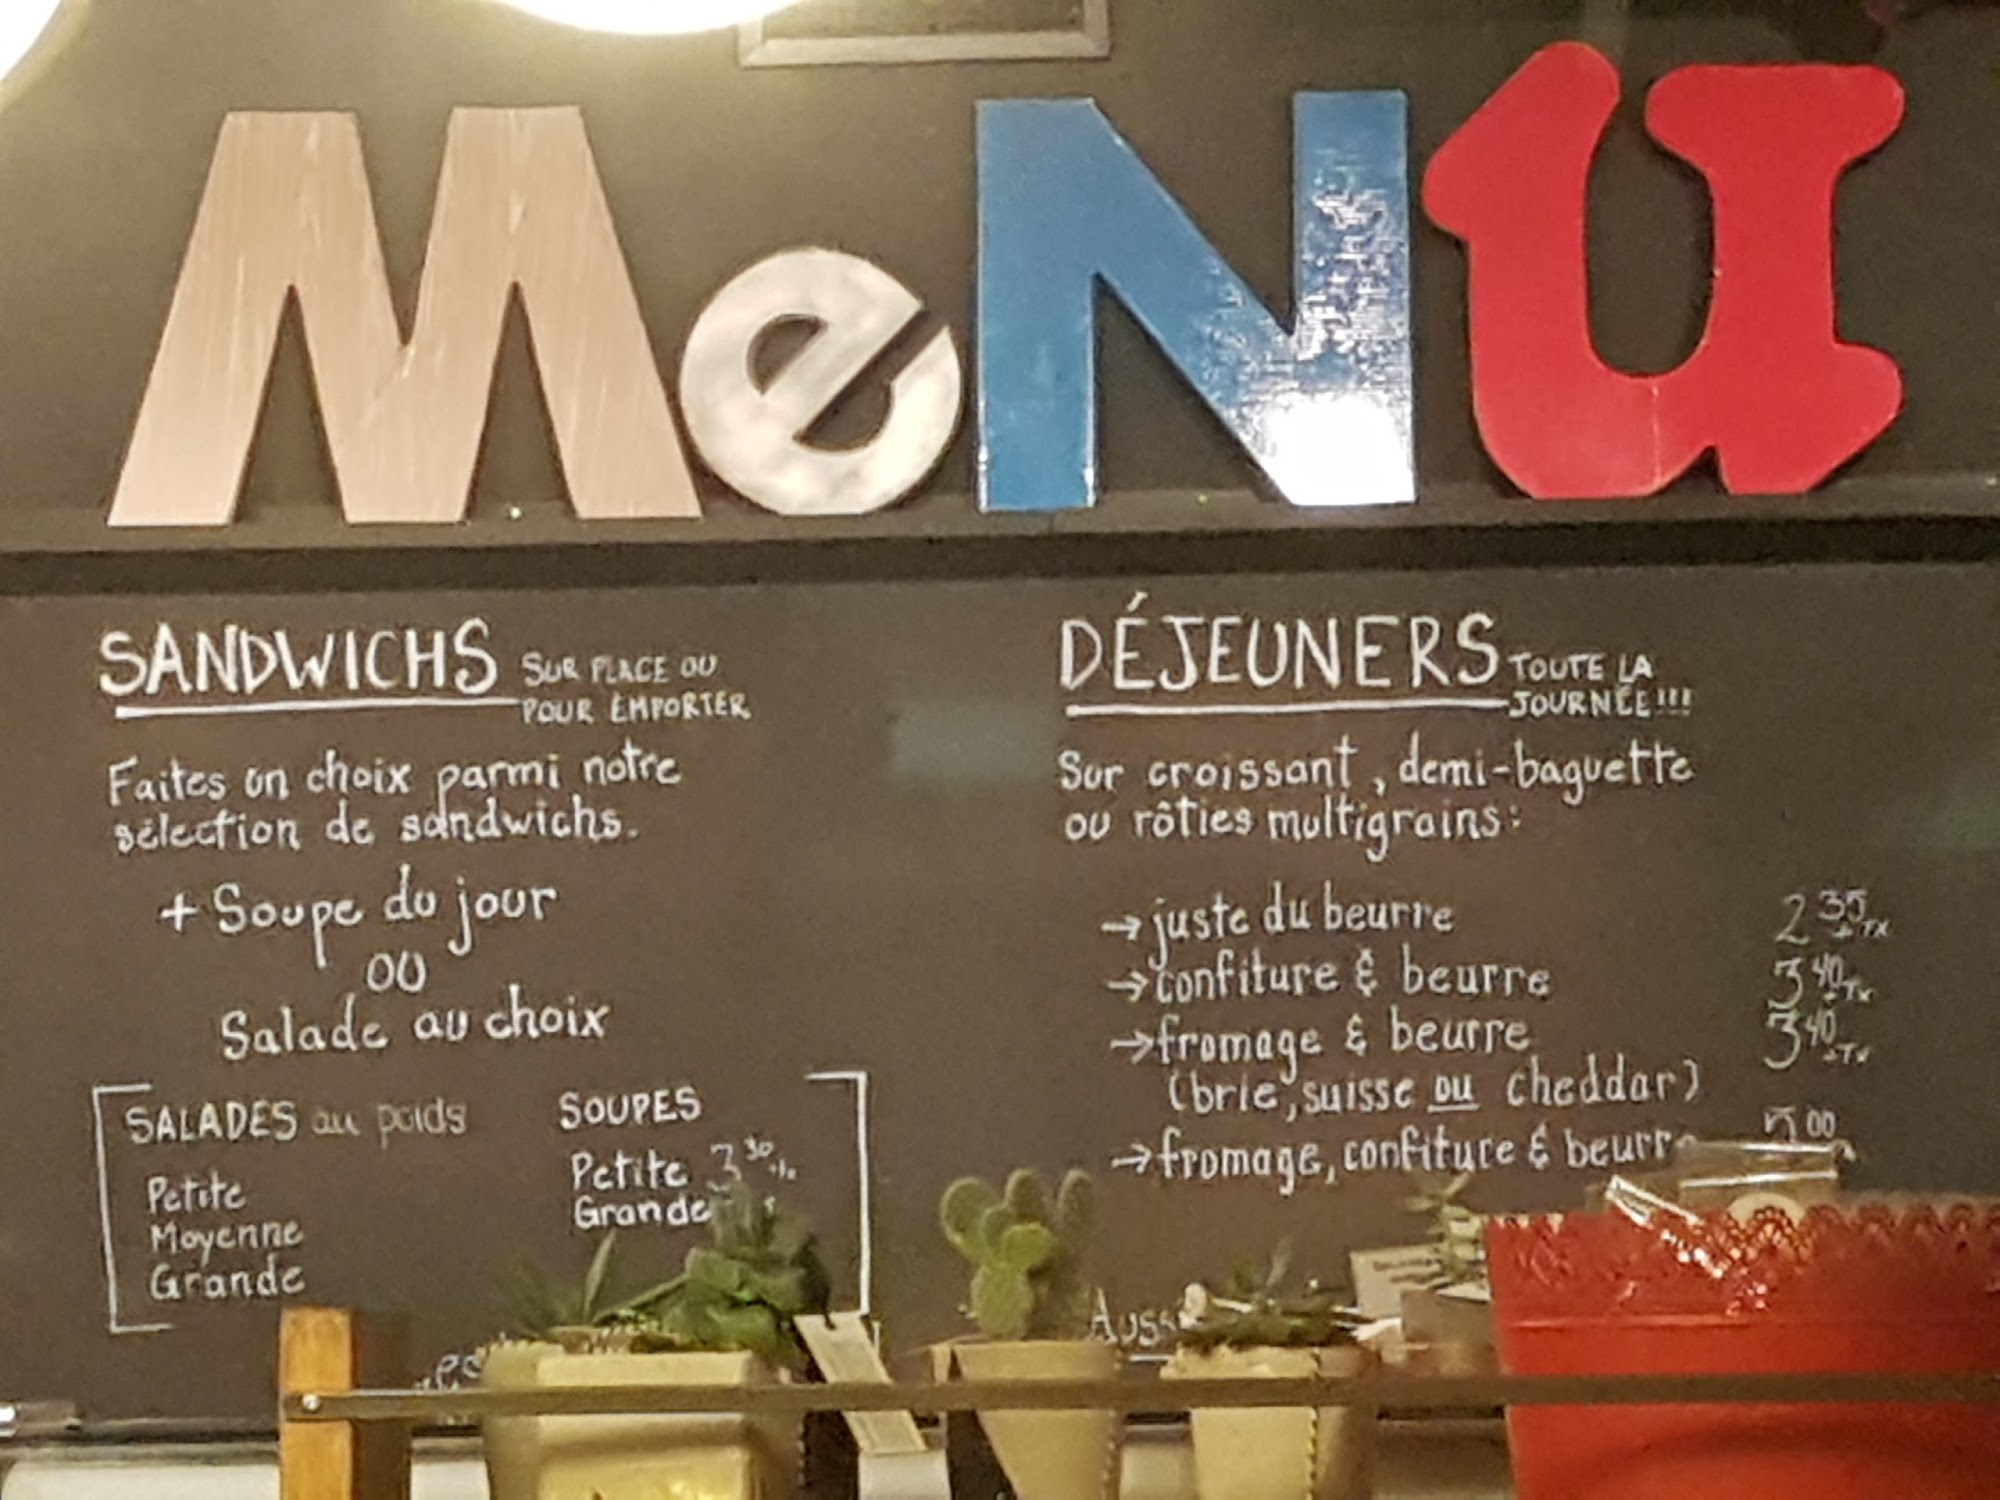 MeNU
SANDWICHS SUR PLACE OU
POUR EMPORTER
Faites un choix parmi notre
sélection de sandwichs.
+ Soupe du jour
OU
Salade au choix
SALADES au poids
Petite
Moyenne
Grande
SOUPES
Petite 3 30
Grande
DÉJEUNERS TOUTE LA
JOURNÉE!!!
Sur croissant, demi-baguette
ou rôties multigrains:
→ juste du beurre 2 35 + TX
→ confiture & beurre 3 40 + Tx
→ fromage & beurre 3 40 + Tx
(brie, suisse ou cheddar)
→ fromage, confiture & beurre 5 00